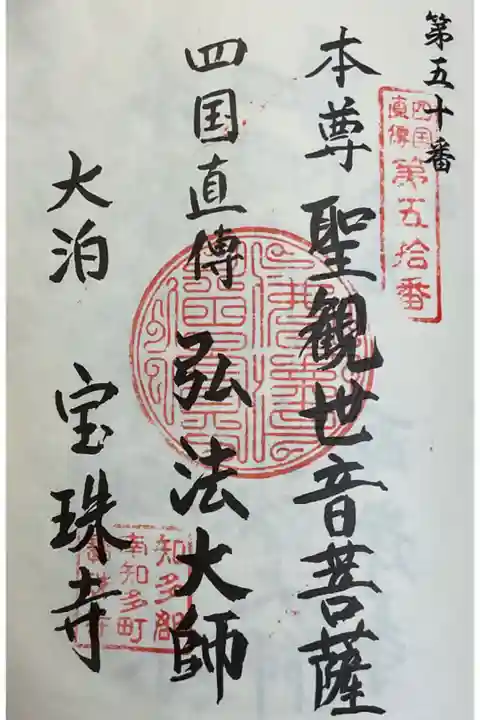 第五十番
四国
直傳
第五拾番
本尊 聖観世音菩薩
四国直傳 弘法大師
大泊 宝珠寺
知多郡
南知多町